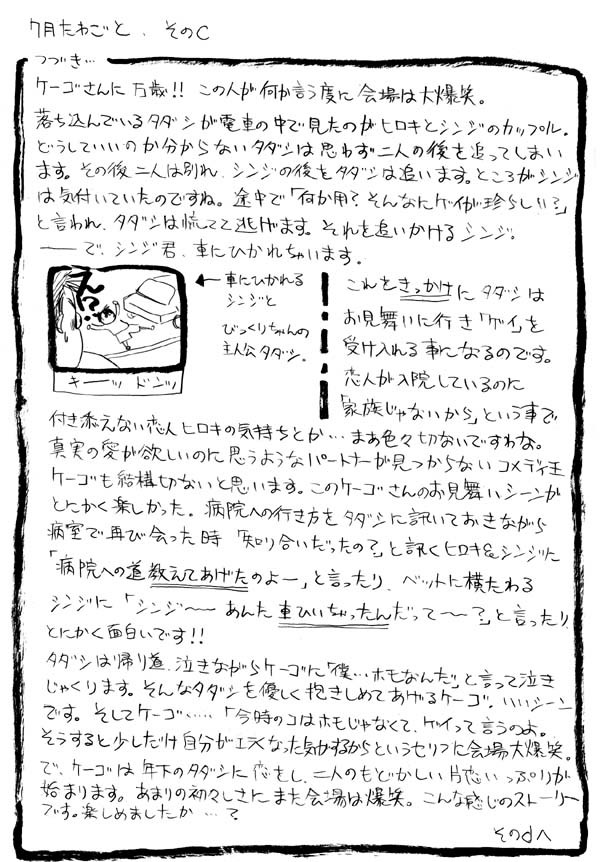 7月たわごと、そのC
つづき…
ケーゴさんに万歳!! この人が何か言う度に会場は大爆笑。
落ち込んでいるタダシが電車の中で見たのがヒロキとシンジのカップル。
どうしていいのか分からないタダシは思わず二人の後を追ってしまい
ます。その後二人は別れ、シンジの後をタダシは追います。ところがシンジ
は気付いていたのですね。途中で「何か用?そんなにゲイが珍らしい?」
と言われ、タダシは慌てて逃げます。それを追いかけるシンジ。
――で、シンジ君、車にひかれちゃいます。
えっ?!
キーッ ドンッ
←車にひかれる
シンジと
びっくりちゃんの
主人公タダシ。
これをきっかけにタダシは
お見舞いに行き「ゲイ」を
受け入れる事になるのです。
恋人が入院しているのに
「家族じゃないから」という事で
付き添えない恋人ヒロキの気持ちとか…まあ色々切ないですわな。
真実の愛が欲しいのに思うようなパートナーが見つからないコメディ王
ケーゴも結構切ないと思います。このケーゴさんのお見舞いシーンが
とにかく楽しかった。病院への行き方をタダシに訊いておきながら
病室で再び会った時「知り合いだったの?」と訊くヒロキ&シンジに
「病院への道教えてあげたのよー」と言ったり、ベットに横たわる
シンジに「シンジ〜〜あんた車ひいちゃったんだって〜?」と言ったり、
とにかく面白いです!!
タダシは帰り道、泣きながらケーゴに「僕…ホモなんだ」と言って泣き
じゃくります。そんなタダシを優しく抱きしめてあげるケーゴ。いいシーン
です。そしてケーゴ……「今時のコはホモじゃなくて、ゲイって言うのよ。
そうすると少しだけ自分がエラくなった気がするからというセリフに会場大爆笑。
で、ケーゴは年下のタダシに恋をし、二人のもどかしい片恋いっぷりが
始まります。あまりの初々しさにまた会場は爆笑。こんな感じのストーリー
です。楽しめましたか…?
そのdへ